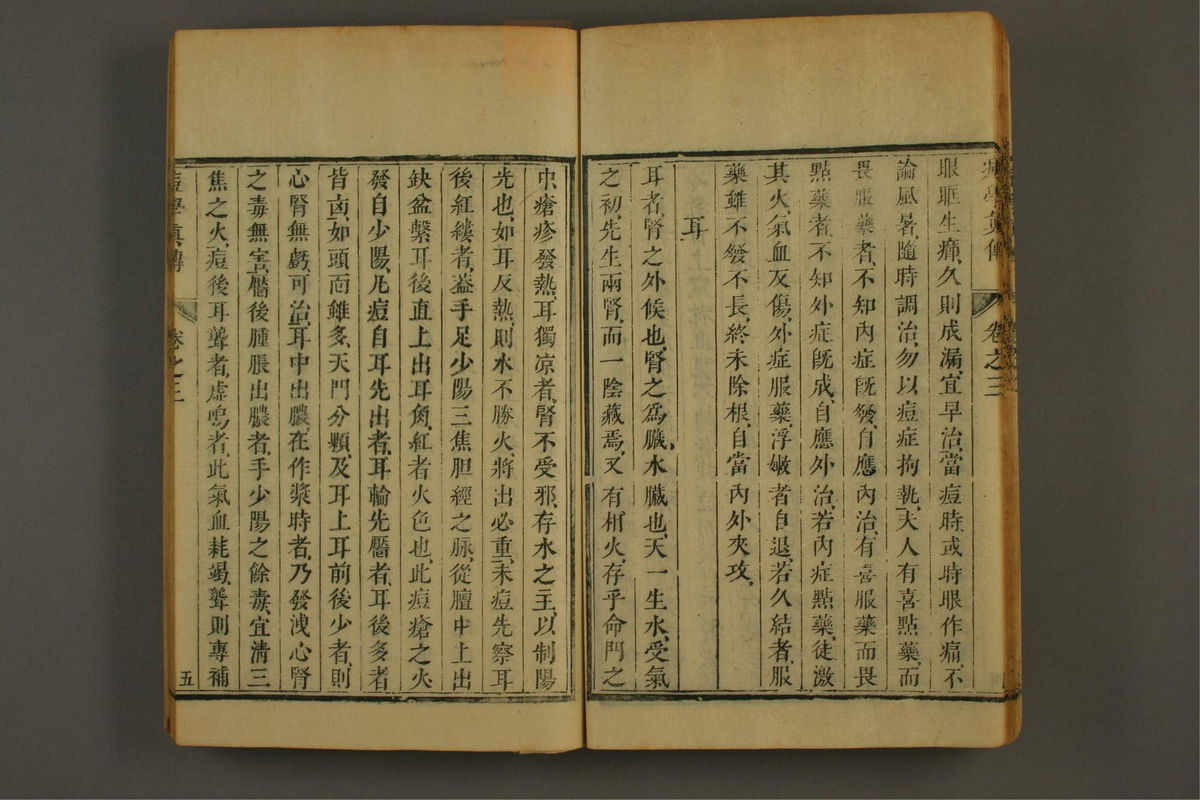 痘學眞傳 卷之三
眼眶生癤，久則成漏，宜早治，當痘時或時眼作痛，不
論風暑，隨時調治，勿以痘症拘執，夫人有喜點藥，而
畏服藥者，不知內症旣發，自應內治，有喜服藥而畏
點藥者，不知外症旣成，自應外治，若內症點藥，徒激
其火，氣血反傷，外症服藥，浮嫩者自退，若久結者，服
藥雖不發不長，終未除根，自當內外夾攻，
耳
耳者，腎之外候也，腎之爲臟，水臟也，天一生水，受氣
之初，先生兩腎，而一陰藏焉，又有相火，存乎命門之
中，瘡疹發熱，耳獨凉者，腎不受邪，存水之王，以制陽
光也，如耳反熱，則水不勝火，將出必重，未痘先察耳
後紅縷者，葢手足少陽三焦胆經之脉，從膻中上出
缺盆，繫耳後，直上出耳角，紅者火色也，此痘瘡之火
發自少陽，凡痘自耳先出者，耳輪先靨者，耳後多者
皆凶，如頭面雖多，天門分顆，及耳上耳前後少者，則
心腎無虧，可治，耳中出膿，在作漿時者，乃發洩心腎
之毒無害，靨後腫脹出膿者，手少陽之餘毒，宜淸三
焦之火，痘後耳聾者，虛鳴者，此氣血耗竭，聾則專補
痘學眞傳 卷之三 五